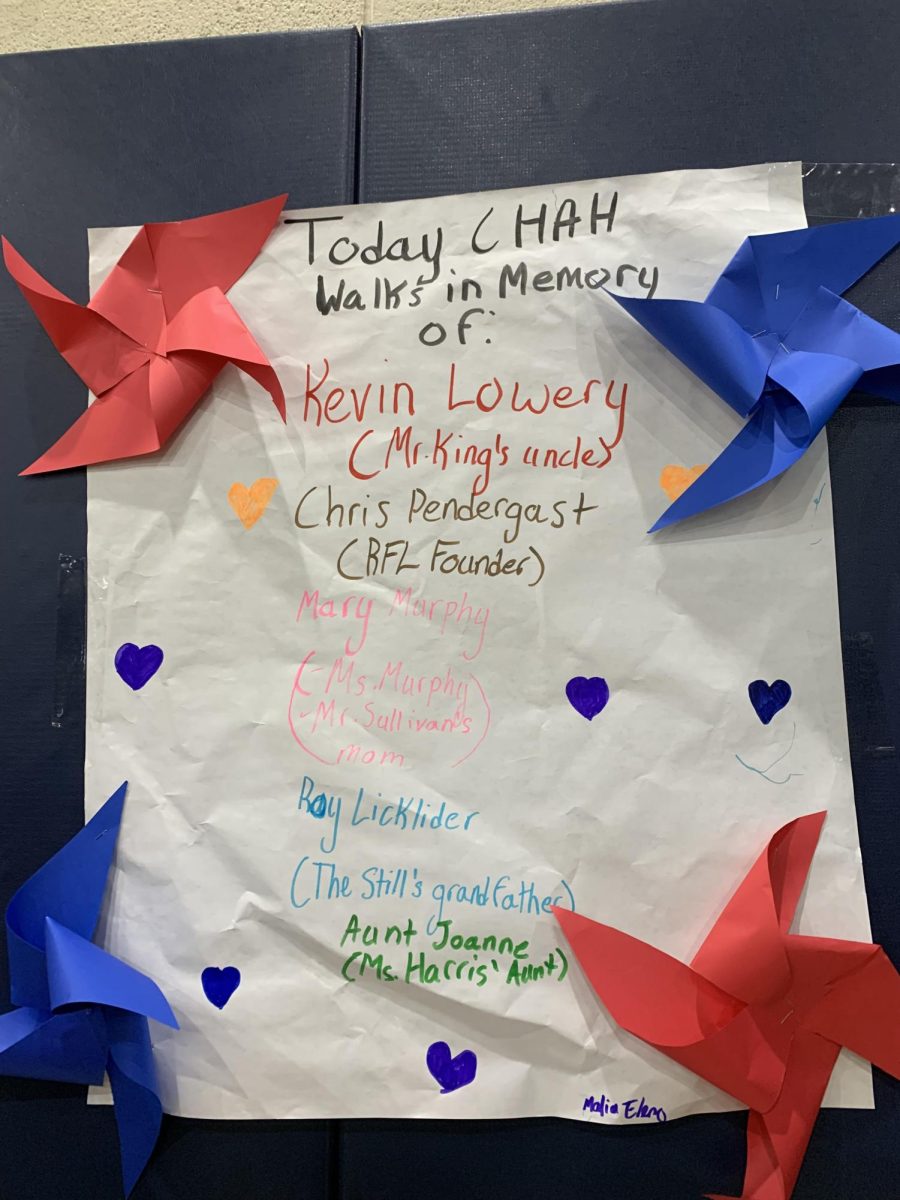 Today CHAH
Walks in Memory
of:
Kevin Lowery
(Mr. King's uncle)
Chris Pendergast
(RFL Founder)
Mary Murphy
(-Ms. Murphy
-Mr. Sullivan's
mom)
Ray Licklider
(The Still's grandfather)
Aunt Joanne
(Ms. Harris' Aunt)
Malia